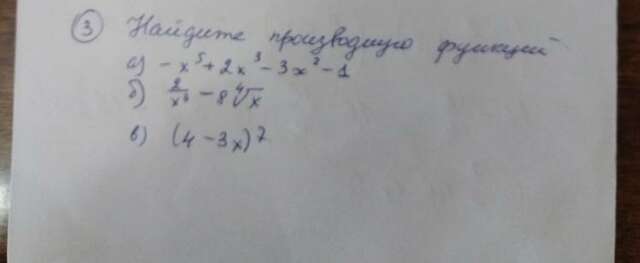 ③ Найдите производную функций
а) -x⁵+2x³-3x²-1
б) 2/x⁴ - 8∜x
в) (4-3x)⁷